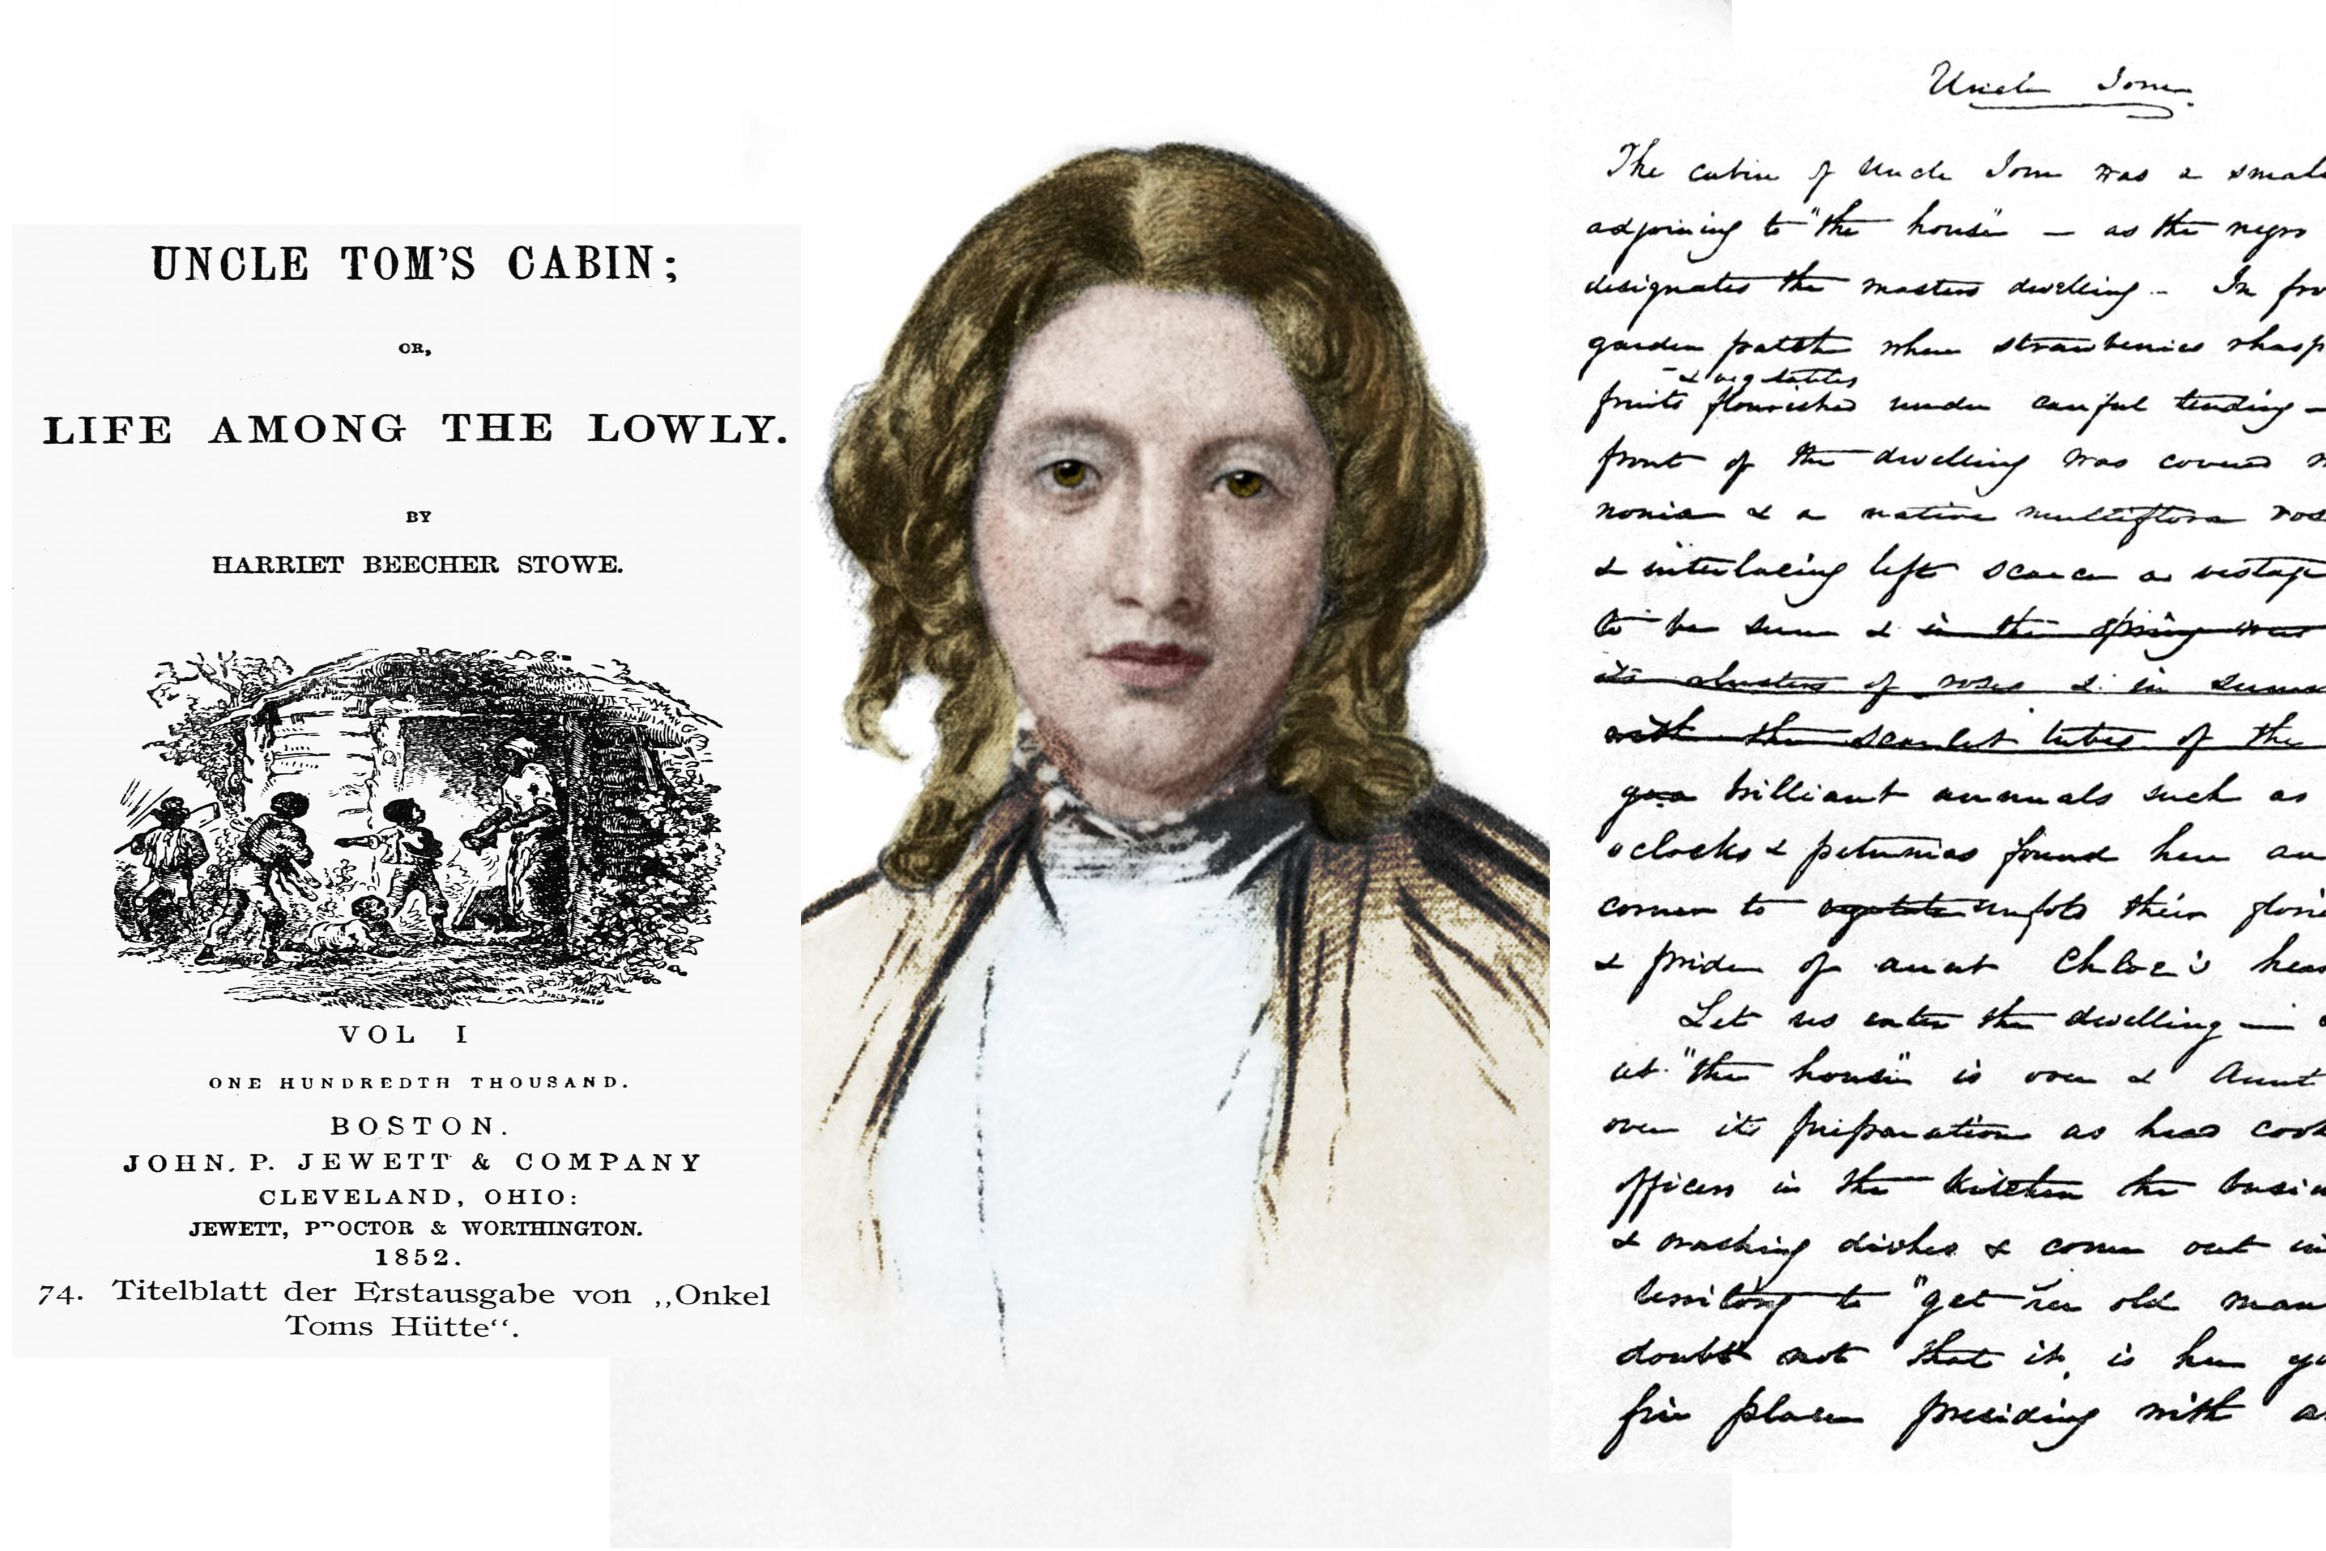 UNCLE TOM'S CABIN;
OR,
LIFE AMONG THE LOWLY.
BY
HARRIET BEECHER STOWE.
VOL I
ONE HUNDREDTH THOUSAND.
BOSTON.
JOHN. P. JEWETT & COMPANY
CLEVELAND, OHIO:
JEWETT, PROCTOR & WORTHINGTON.
1852.
74. Titelblatt der Erstausgabe von ,,Onkel
Toms Hütte“.
Uncle Tom
The cabin of Uncle Tom was a small
adjoining to "the house" — as the negro
designates the masters dwelling — In
garden patch where strawberries
& vegetables
fruits flourished under careful tending —
front of the dwelling was covered
& a native multiflora
& interlacing left scarce a
to be seen & in the spring
its clusters of roses & in
with the scarlet tubes of the
brilliant annuals such as
oclocks & petunias found here an
corner to vegetate unfold their
& pride of aunt Chloe's
Let us enter the dwelling —
at "the house" is over & Aunt
over its preparation as head
officer in the kitchen the
& washing dishes & come out
to "get her old
doubt not that it is her
fire place presiding with